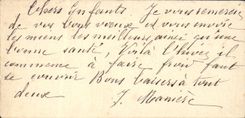 Chers Enfants Je vous remercie
de vos bons voeux et vous envoie
les miens les meilleurs, ainsi qu'une
bonne santé. Voilà l'hiver il
commence à faire froid faut
se couvrir Bons baisers à tout
deux
J.